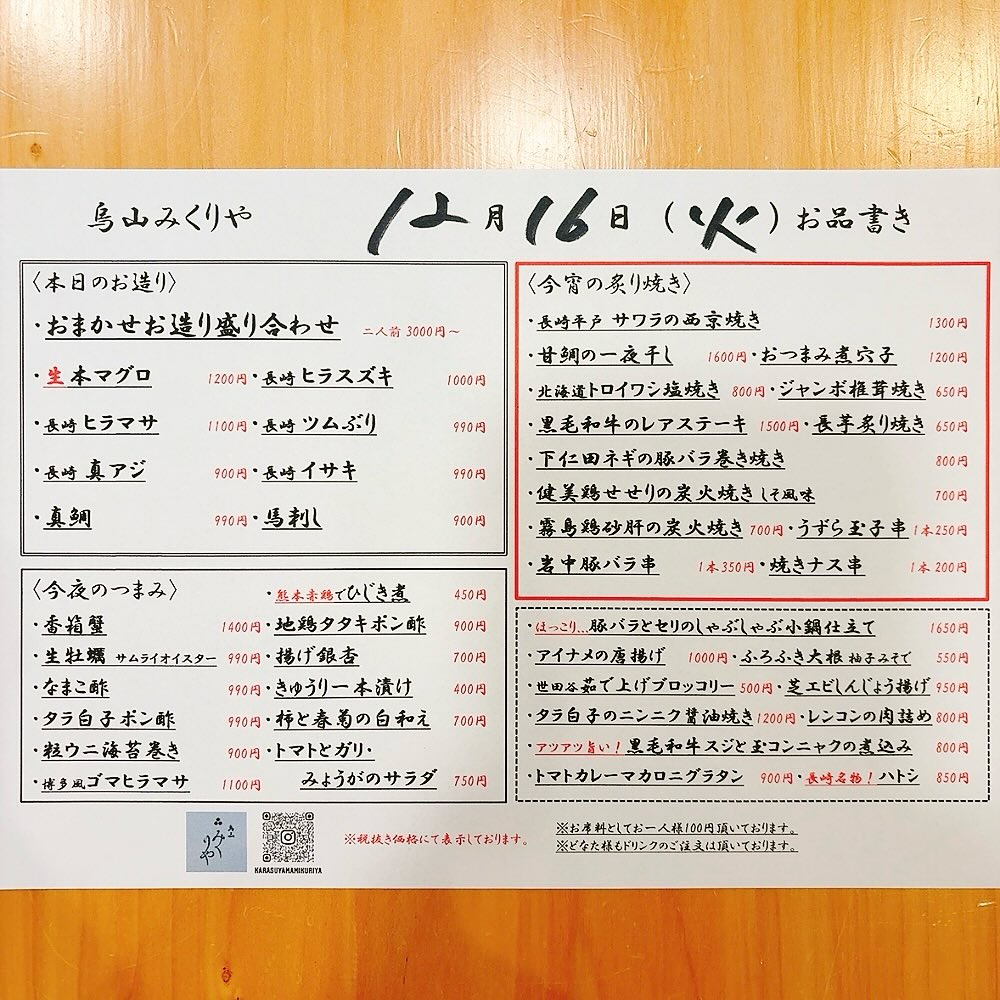 烏山みくりや 12月16日(火)お品書き
〈本日のお造り〉
・おまかせお造り盛り合わせ 二人前 3000円〜
・生本マグロ 1200円・長崎 ヒラスズキ 1000円
・長崎 ヒラマサ 1100円・長崎 ツムぶり 990円
・長崎 真アジ 900円・長崎 イサキ 990円
・真鯛 990円・馬刺し 900円
〈今夜のつまみ〉 ・熊本赤鶏でひじき煮 450円
・香箱蟹 1400円・地鶏タタキポン酢 900円
・生牡蠣 サムライオイスター 990円・揚げ銀杏 700円
・なまこ酢 990円・きゅうり一本漬け 400円
・タラ白子ポン酢 990円・柿と春菊の白和え 700円
・粒ウニ海苔巻き 900円・トマトとガリ・
・博多風ゴマヒラマサ 1100円 みょうがのサラダ 750円
〈今宵の炙り焼き〉
・長崎平戸 サワラの西京焼き 1300円
・甘鯛の一夜干し 1600円・おつまみ煮穴子 1200円
・北海道トロイワシ塩焼き 800円・ジャンボ椎茸焼き 650円
・黒毛和牛のレアステーキ 1500円・長芋炙り焼き 650円
・下仁田ネギの豚バラ巻き焼き 800円
・健美鶏せせりの炭火焼き しそ風味 700円
・霧島鶏砂肝の炭火焼き 700円・うずら玉子串 1本250円
・岩中豚バラ串 1本350円・焼きナス串 1本200円
・ほっこり...豚バラとセリのしゃぶしゃぶ小鍋仕立て 1650円
・アイナメの唐揚げ 1000円・ふろふき大根 柚子みそで 550円
・世田谷茹で上げブロッコリー 500円・芝エビしんじょう揚げ 950円
・タラ白子のニンニク醤油焼き 1200円・レンコンの肉詰め 800円
・アツアツ旨い！黒毛和牛スジと玉コンニャクの煮込み 800円
・トマトカレーマカロニグラタン 900円・長崎名物！ハトシ 850円
烏山
みくりや
KARASUYAMAMIKURIYA
※税抜き価格にて表示しております。
※お席料としてお一人様100円頂いております。
※どなた様もドリンクのご注文は頂いております。